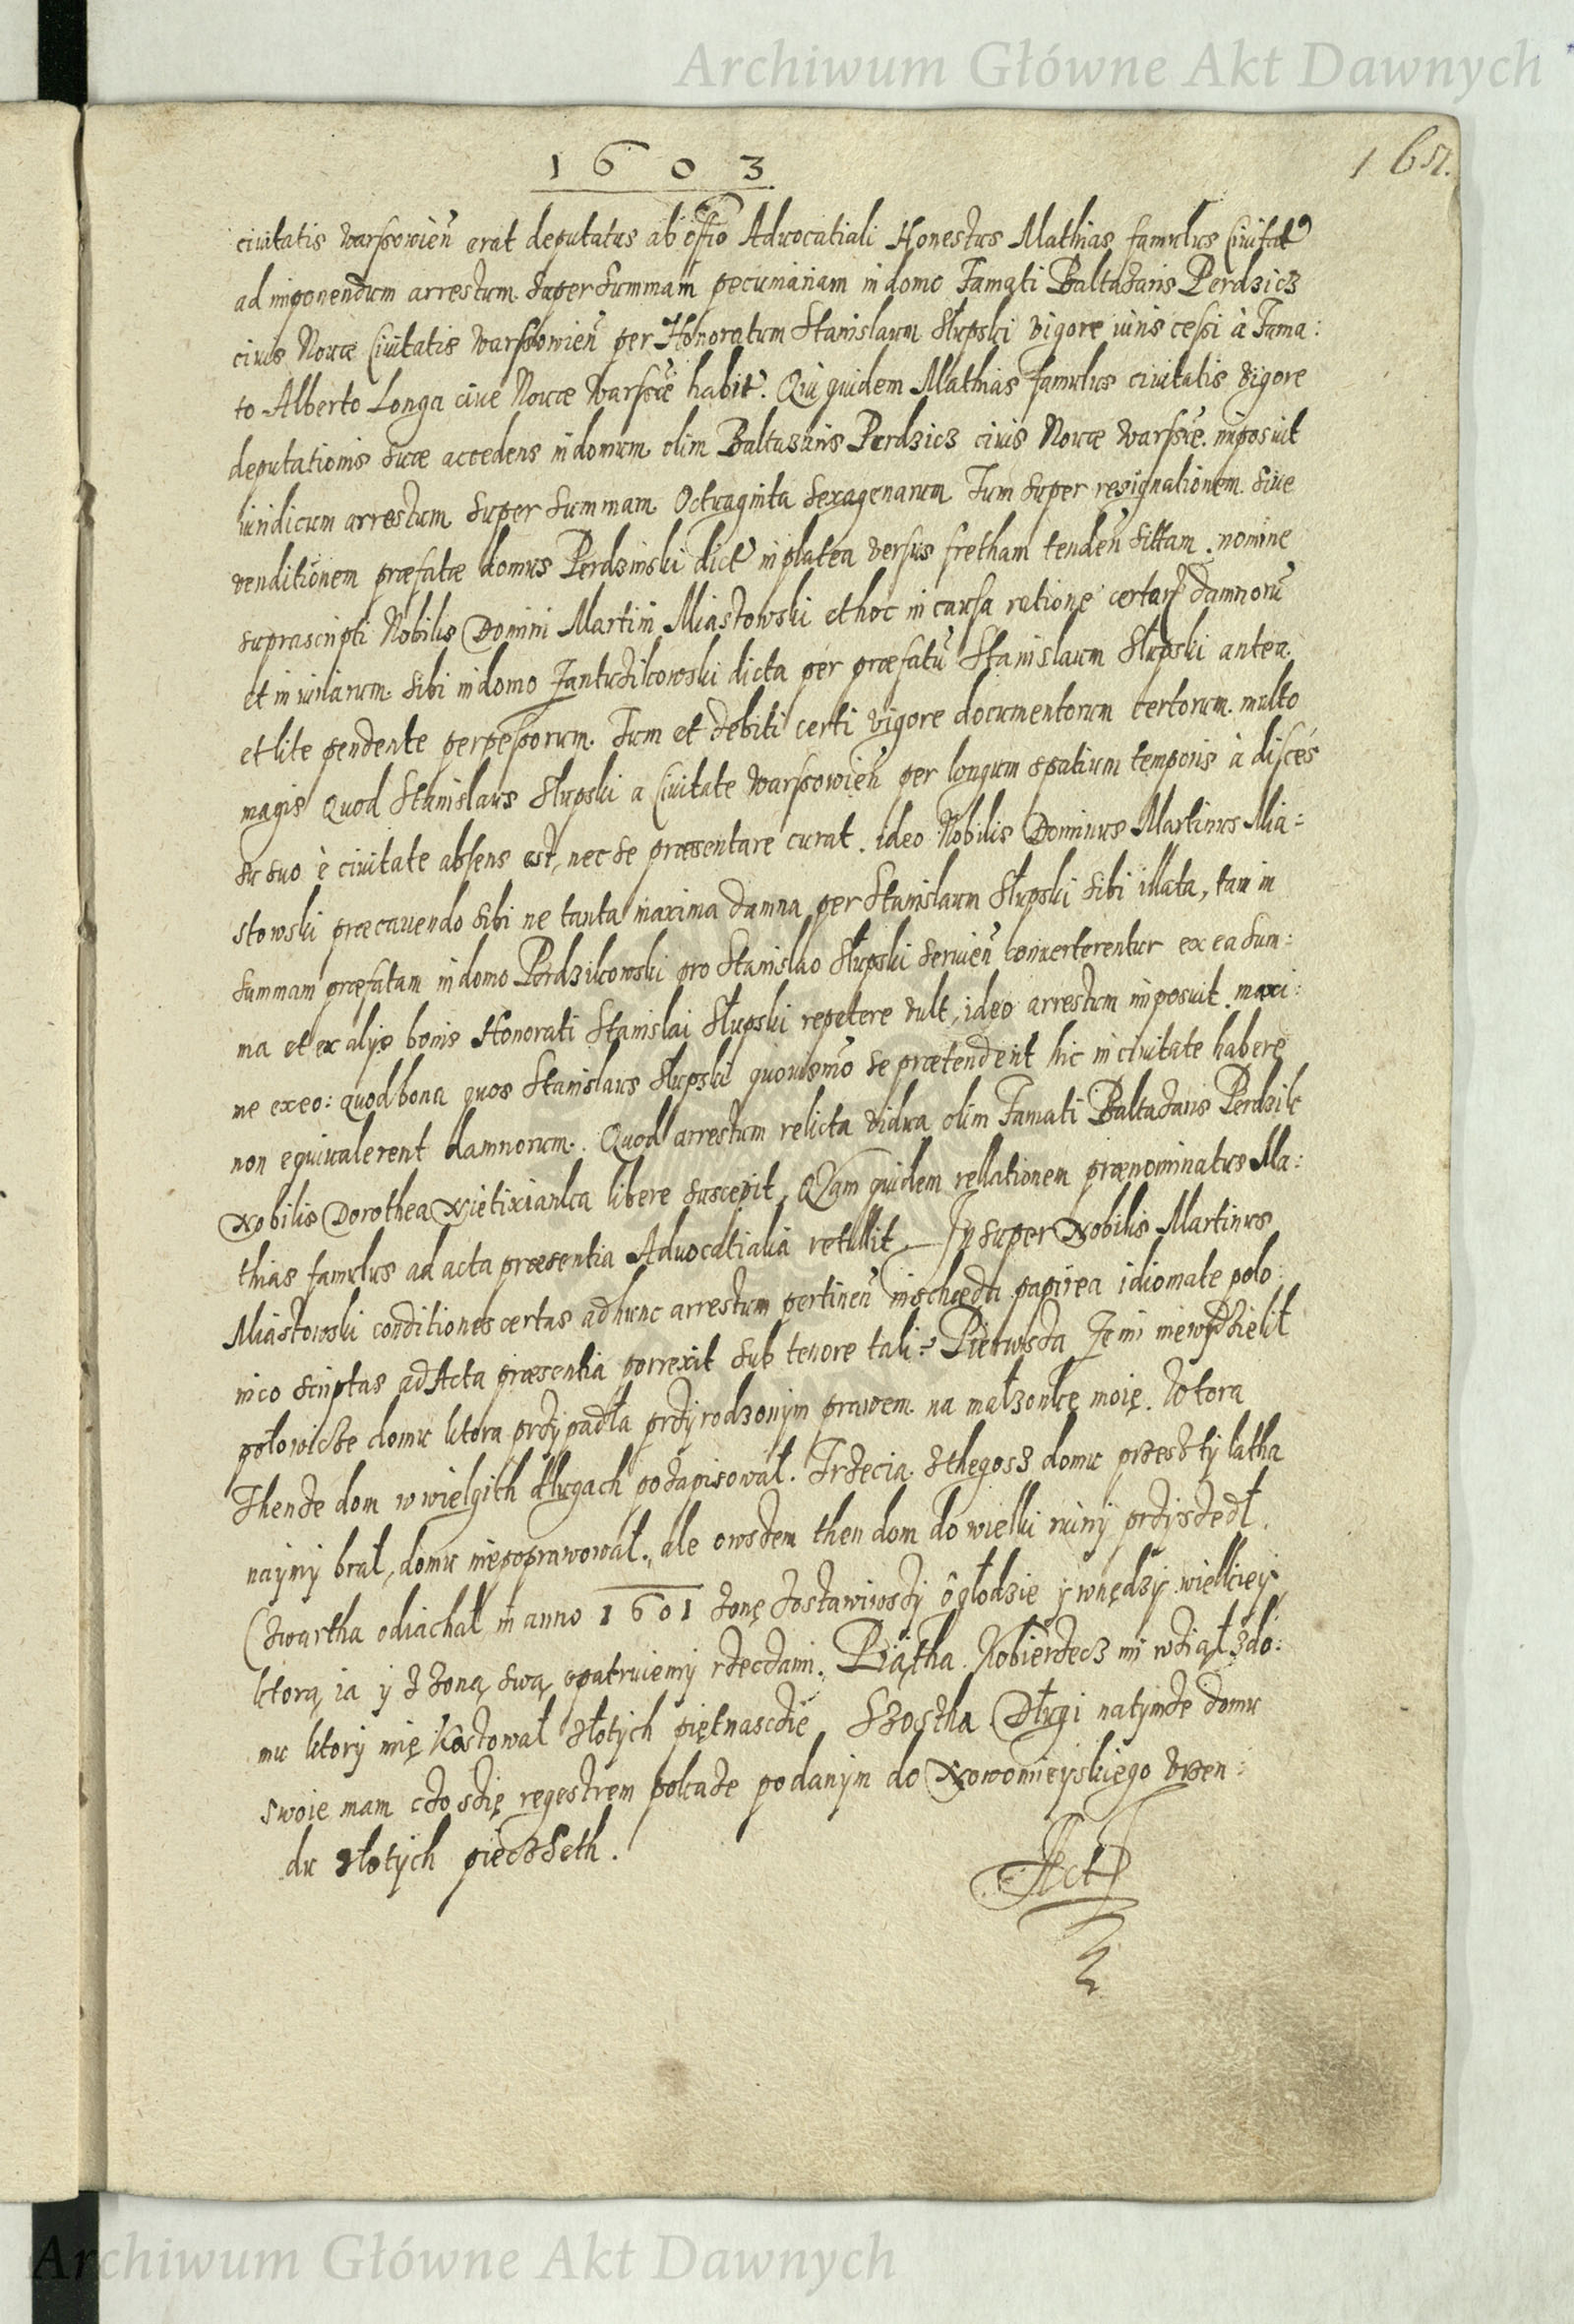 Archiwum Główne Akt Dawnych
1603
civitatis Warssowien̄ erat deputatus ab offio Advocatiali Honestus Mathias famulus Civitat
ad imponendum arrestum super summam pecuniariam in domo Famati Baltazaris Perdzicz
civis Novæ Civitatis Warssowien̄ per Honoratum Stanislaum Słupski vigore iuris cessi à Fama:
to Alberto Longa cive Novæ Warssae habit. Qui quidem Mathias famulus civitatis vigore
deputationis suæ accedens in domum olim Baltazaris Perdzicz civis Novæ Warssae. imposuit
iuridicum arrestum super summam Octuaginta sexagenarum Tum super resignationem sive
venditionem præfatæ domus Perdzinski dict in platea versus fretham tenden̄ sittam. nomine
suprascripti Nobilis Domini Martini Miastowski et hoc in causa ratione certar damnorū
et iniuriarum sibi in domo Jantuzikowski dicta per præfatū Stanislaum Słupski antea.
et lite pendente perpessorum. Tum et debiti certi vigore documentorum certorum. multo
magis quod Stanislaus Słupski a Civitate Warssowien̄ per longum spatium temporis à disces
su suo è civitate absens est, nec se præsentare curat. ideo Nobilis Dominus Martinus Mia=
stowski præcavendo sibi ne tanta maxima damna per Stanislaum Słupski sibi illata, tam in
summam præfatam in domo Perdzikowski pro Stanislao Słupski servien̄ converterentur ex ea sum:
ma et ex alijs bonis Honorati Stanislai Słupski repetere vult, ideo arrestum imposuit. maxi:
me ex eo: quod bona quos Stanislaus Słupski quovismō se prætenderit hic in civitate habere
non equivalerent damnorum. Quod arrestum relicta vidua olim Famati Baltazaris Perdzik
Nobilis Dorothea libere suscepit, Quam quidem rellationem prænominatus Ma:
thias famulus ad acta præsentia Advocatialia retullit. Insuper Nobilis Martinus
Miastowski conditiones certas ad hunc arrestum pertinen̄ in schæda papirea idiomate polo:
nico scriptas ad Acta præsentia porrexit sub tenore tali: Pierwsza Je mi niewydzielił
połowicze domu ktora przÿpadła przÿrodzonÿm prawem na małzonkę moię. Wtora
Thenze dom w wielgich długach pozapisował. Trzecia. zthegosz domu przesz tÿ latha
naÿmÿ brał, domu niepoprawował., ale owszem then dom do wielki ruinÿ przÿszedł.
Czwartha odiachał in anno 1601 zonę zostawiwszÿ o głodzie ÿ w nędzÿ wielkieÿ,
ktorą ia ÿ z zoną swą opatruiemÿ rzeczami. Piątha. Kobierzecz mi wziął z do:
mu ktorÿ mię kosztował złotÿch piętnasczie Szostha Długi na tÿmze domu
swoie mam czo szię regestrem pokaze podanÿm do Nowomieÿskiego Urzen:
du złotÿch pieczseth.
Act
Archiwum Główne Akt Dawnych